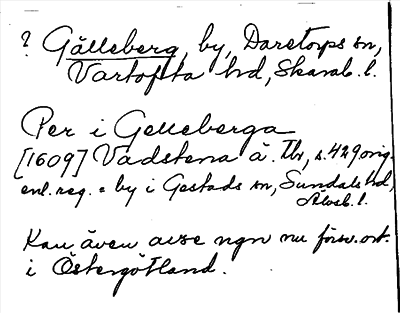 ? Gälleberg, by, Daretorps sn,
Vartofta hd, Skarab. l.
Per i Gelleberga
[1609] Vadstena ä. Tb, s. 429 orig.
enl. reg. = by i Gestads sn, Sundals hd,
Älvsb. l.
Kan även avse ngn nu försv. ort.
i Östergötland.